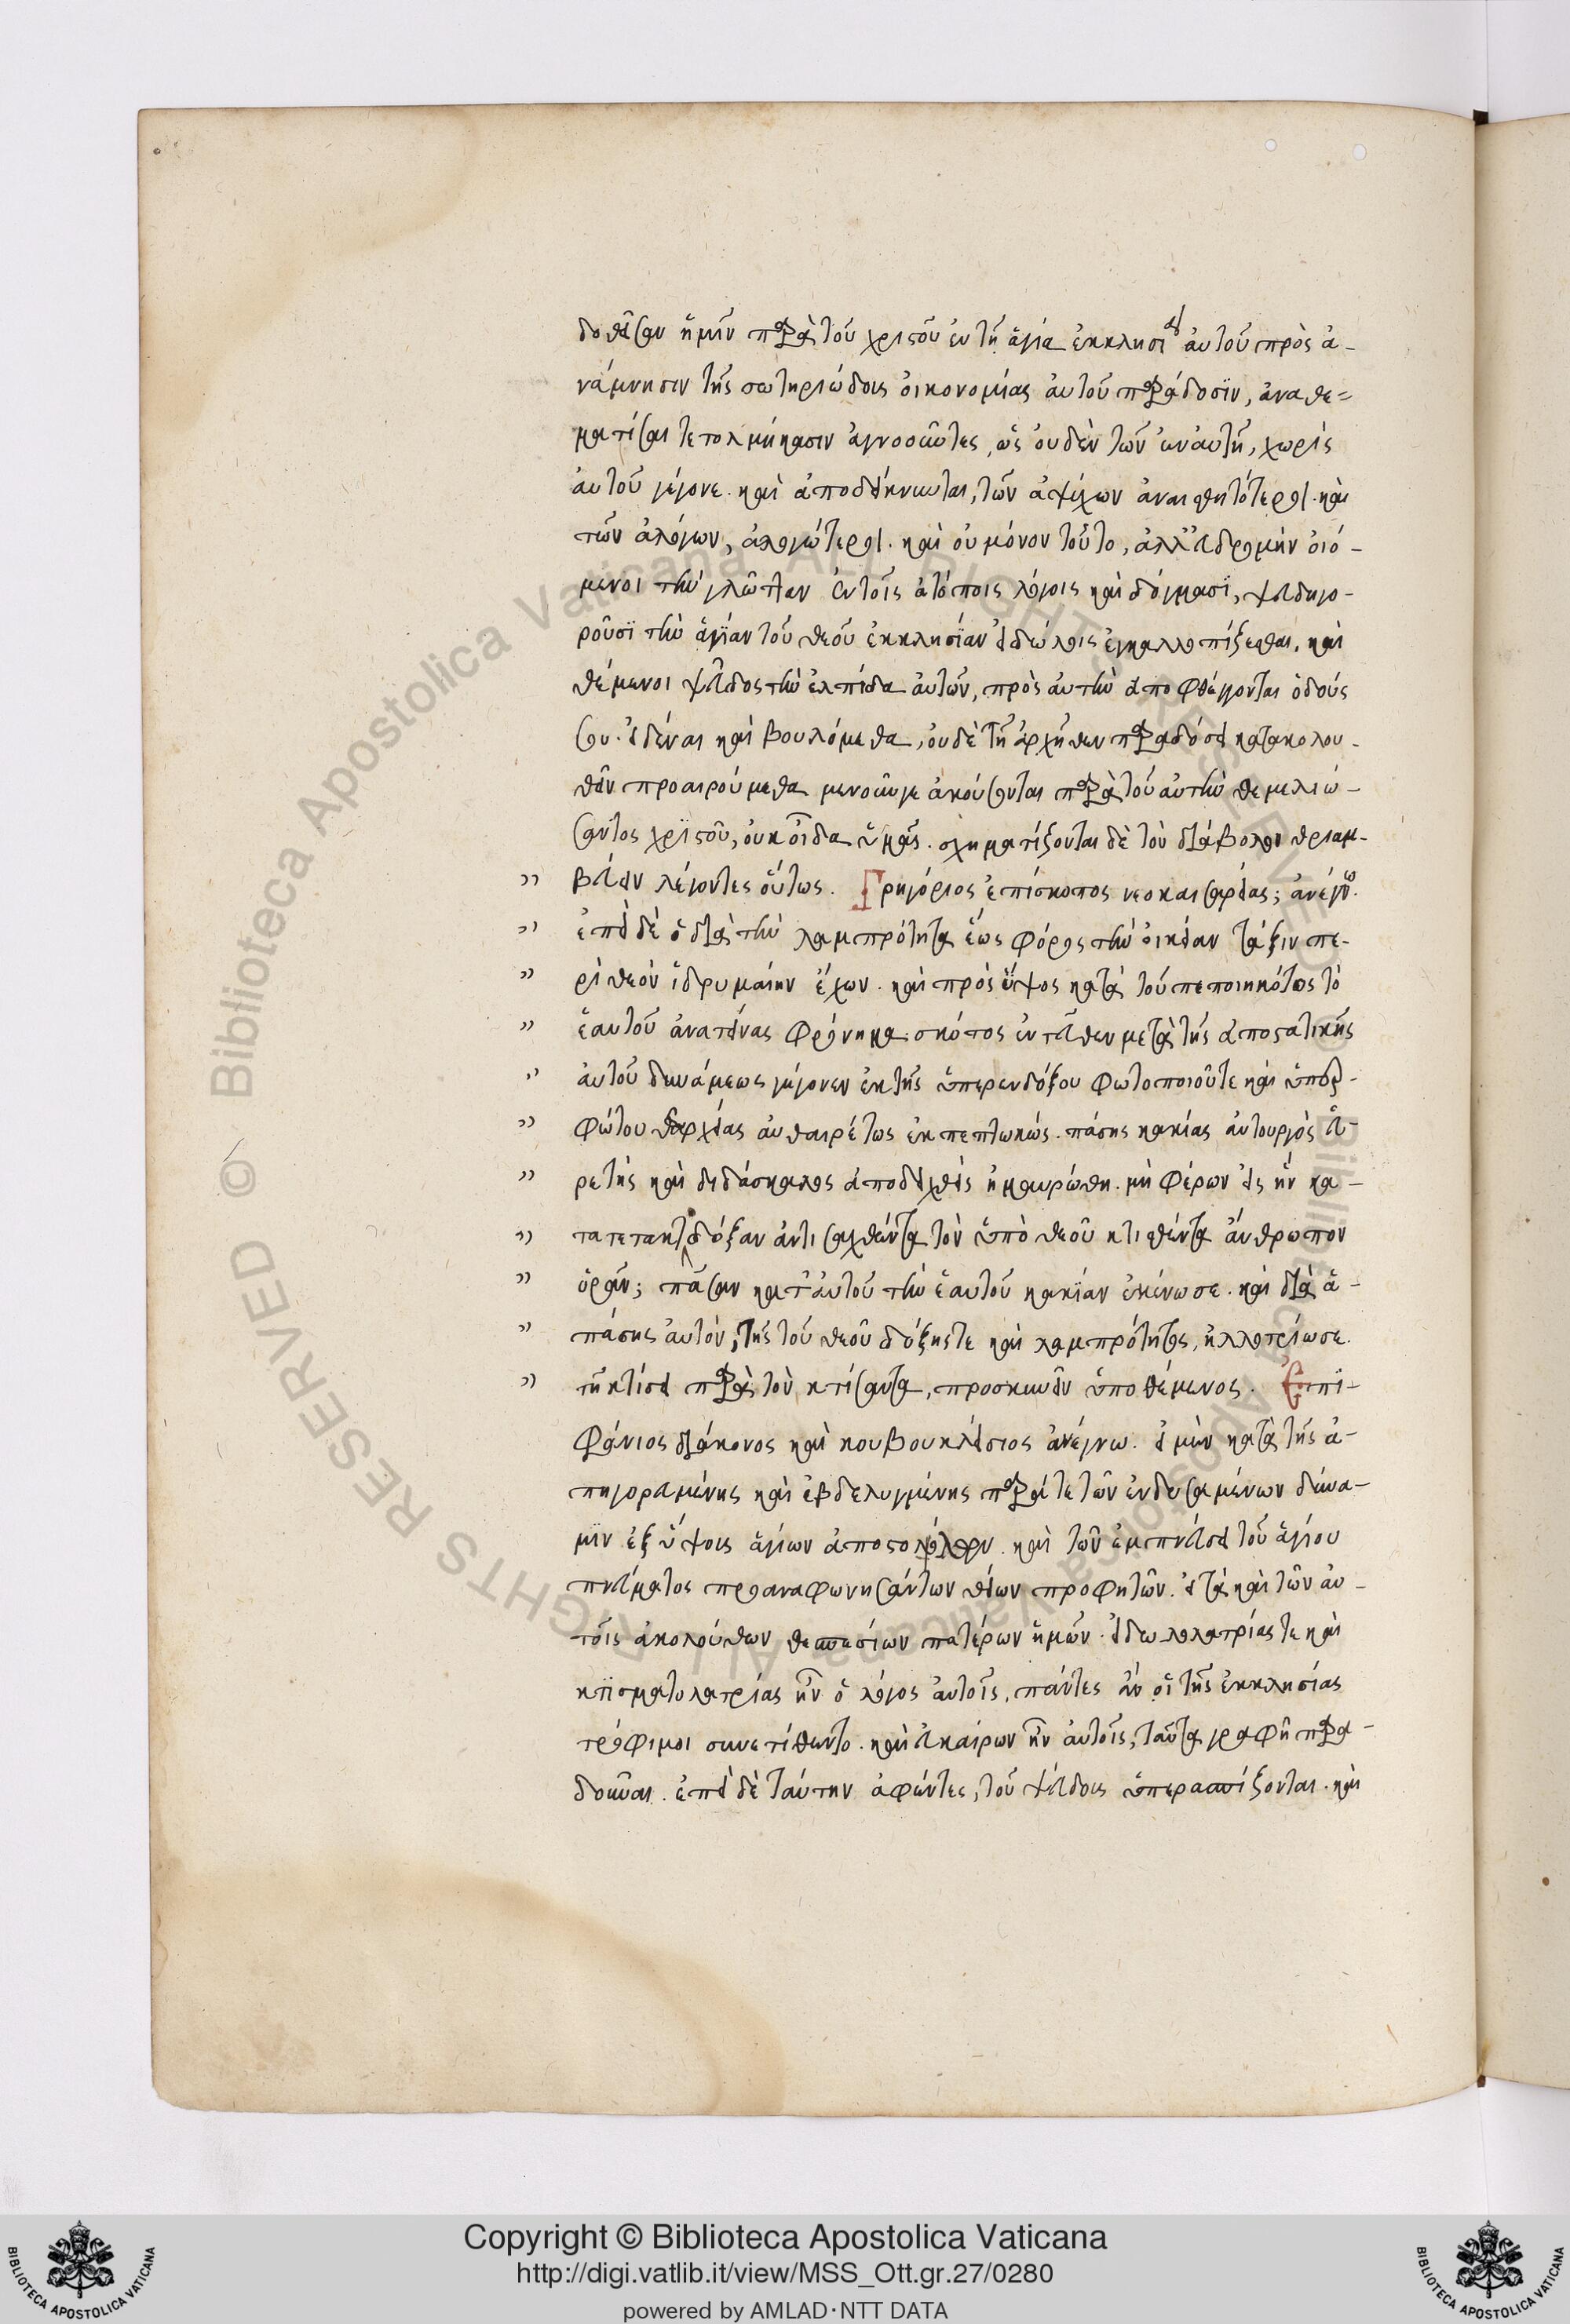 δοθεῖσαν ἡμῖν παρὰ τοῦ χριστοῦ ἐν τῇ ἁγία ἐκκλησία αὐτοῦ πρὸς ἀ-
νάμνησιν τῆς σωτηριώδους οἰκονομίας αὐτοῦ παράδοσϊν, ἀναθε=
ματίσαι τετολμήκασιν ἀγνοοῦντες, ὡς οὐδὲν τῶν ἐν αὐτῇ, χωρὶς
αὐτοῦ γέγονε. καὶ ἀποδείκνυνται, τῶν ἀψύχων ἀναισθητότεροι. καὶ
τῶν ἀλόγων, ἀλογώτεροι. καὶ οὐ μόνον τοῦτο, ἀλλ' εὐδρομεῖν οἰό-
μενοι τὴν γλῶτταν ἐν τοῖς ἀτόποις λόγοις καὶ δόγμασϊ, ψευδηγο-
ροῦσϊ τὴν ἁγίαν τοῦ θεοῦ ἐκκλησίαν εἰδώλοις ἐγκαλλοπίζεσθαι. καὶ
θέμενοι ψεῦδος τὴν ἐλπίδα αὐτῶν, πρὸς αὐτὴν ἀποφθέγγονται ὁδούς
σου. εἰδέναι καὶ βουλόμεθα, οὐδὲ τῇ ἀρχῆθεν παραδόσει κατακολου-
θεῖν προαιρούμεθα μενοῦνγε ἀκούσονται παρὰ τοῦ αὐτὴν θεμελιώ-
σαντος χριστοῦ, οὐκ οἶδα ὑμᾶς. σχηματίζονται δὲ τὸν διάβολον θριαμ-
" βεύειν λέγοντες οὕτως. Γρηγόριος ἐπίσκοπος νεοκαισαρείας; ἀνέγνω.
" ἐπεὶ δὲ ὁ διὰ τὴν λαμπρότητα ἑωςφόρος τὴν οἰκείαν τάξιν πε-
" ρὶ θεὸν ἱδρυμαίην ἔχων. καὶ πρὸς ὕψος κατὰ τοῦ πεποιηκότος τὸ
" ἑαυτοῦ ἀνατείνας φρόνημα. σκότος ἐντεῦθεν μετὰ τῆς ἀποστατικῆς
" αὐτοῦ δυνάμεως γέγονεν ἐκ τῆς ὑπερενδόξου φωτοποιοῦ τε καὶ ὑπερ-
" φώτου θεαρχίας αὐθαιρέτως ἐκπεπτωκώς. πάσης κακίας αὐτουργὸς εὑ-
" ρετής καὶ διδάσκαλος ἀποδειχθεὶς ἠμαυρώθη. μὴ φέρων εἰς ἣν κα-
" τατετακτο δόξαν ἀντισαχθέντα τὸν ὑπὸ θεοῦ κτισθέντα ἄνθρωπον
" ὁρᾶν; πᾶσαν κατ' αὐτοῦ τὴν ἑαυτοῦ κακίαν ἐκένωσε. καὶ διὰ ἀ-
" πάσης αὐτὸν, τῆς τοῦ θεοῦ δόξης τε καὶ λαμπρότητος, ἠλλοτρίωσε.
" τῇ κτίσει παρὰ τὸν κτίσαντα, προσκυνεῖν ὑποθέμενος. Ἐπι-
φάνιος διάκονος καὶ κουβουκλείσιος ἀνέγνω. εἰ μὲν κατὰ τῆς ἀ-
πηγορευμένης καὶ ἐβδελυγμένης παρά τε τῶν ἐνδυσαμένων δύνα-
μϊν ἐξ ὕψους ἁγίων ἀποστόλων. καὶ τῶν ἐμπνεύσει τοῦ ἁγίου
πνεύματος προαναφωνησάντων θείων προφητῶν. εἶτα καὶ τῶν αὐ-
τοῖς ἀκολούθων θεσπεσίων πατέρων ἡμῶν. εἰδωλολατρίας τε καὶ
κτϊσματολατρίας ἦν ὁ λόγος αὐτοῖς, πάντες ἂν οἱ τῆς ἐκκλησίας
τρόφιμοι συνετίθεντο. καὶ εὔκαιρον ἦν αὐτοῖς, ταῦτα γραφῇ παρα-
δοῦναι. ἐπεὶ δὲ ταύτην ἀφέντες, τοῦ ψεύδους ὑπερασπίζονται. καὶ
© Biblioteca Apostolica Vaticana ALL RIGHTS RESERVED
Copyright © Biblioteca Apostolica Vaticana
http://digi.vatlib.it/view/MSS_Ott.gr.27/0280
powered by AMLAD·NTT DATA
BIBLIOTECA APOSTOLICA VATICANA
BIBLIOTECA APOSTOLICA VATICANA